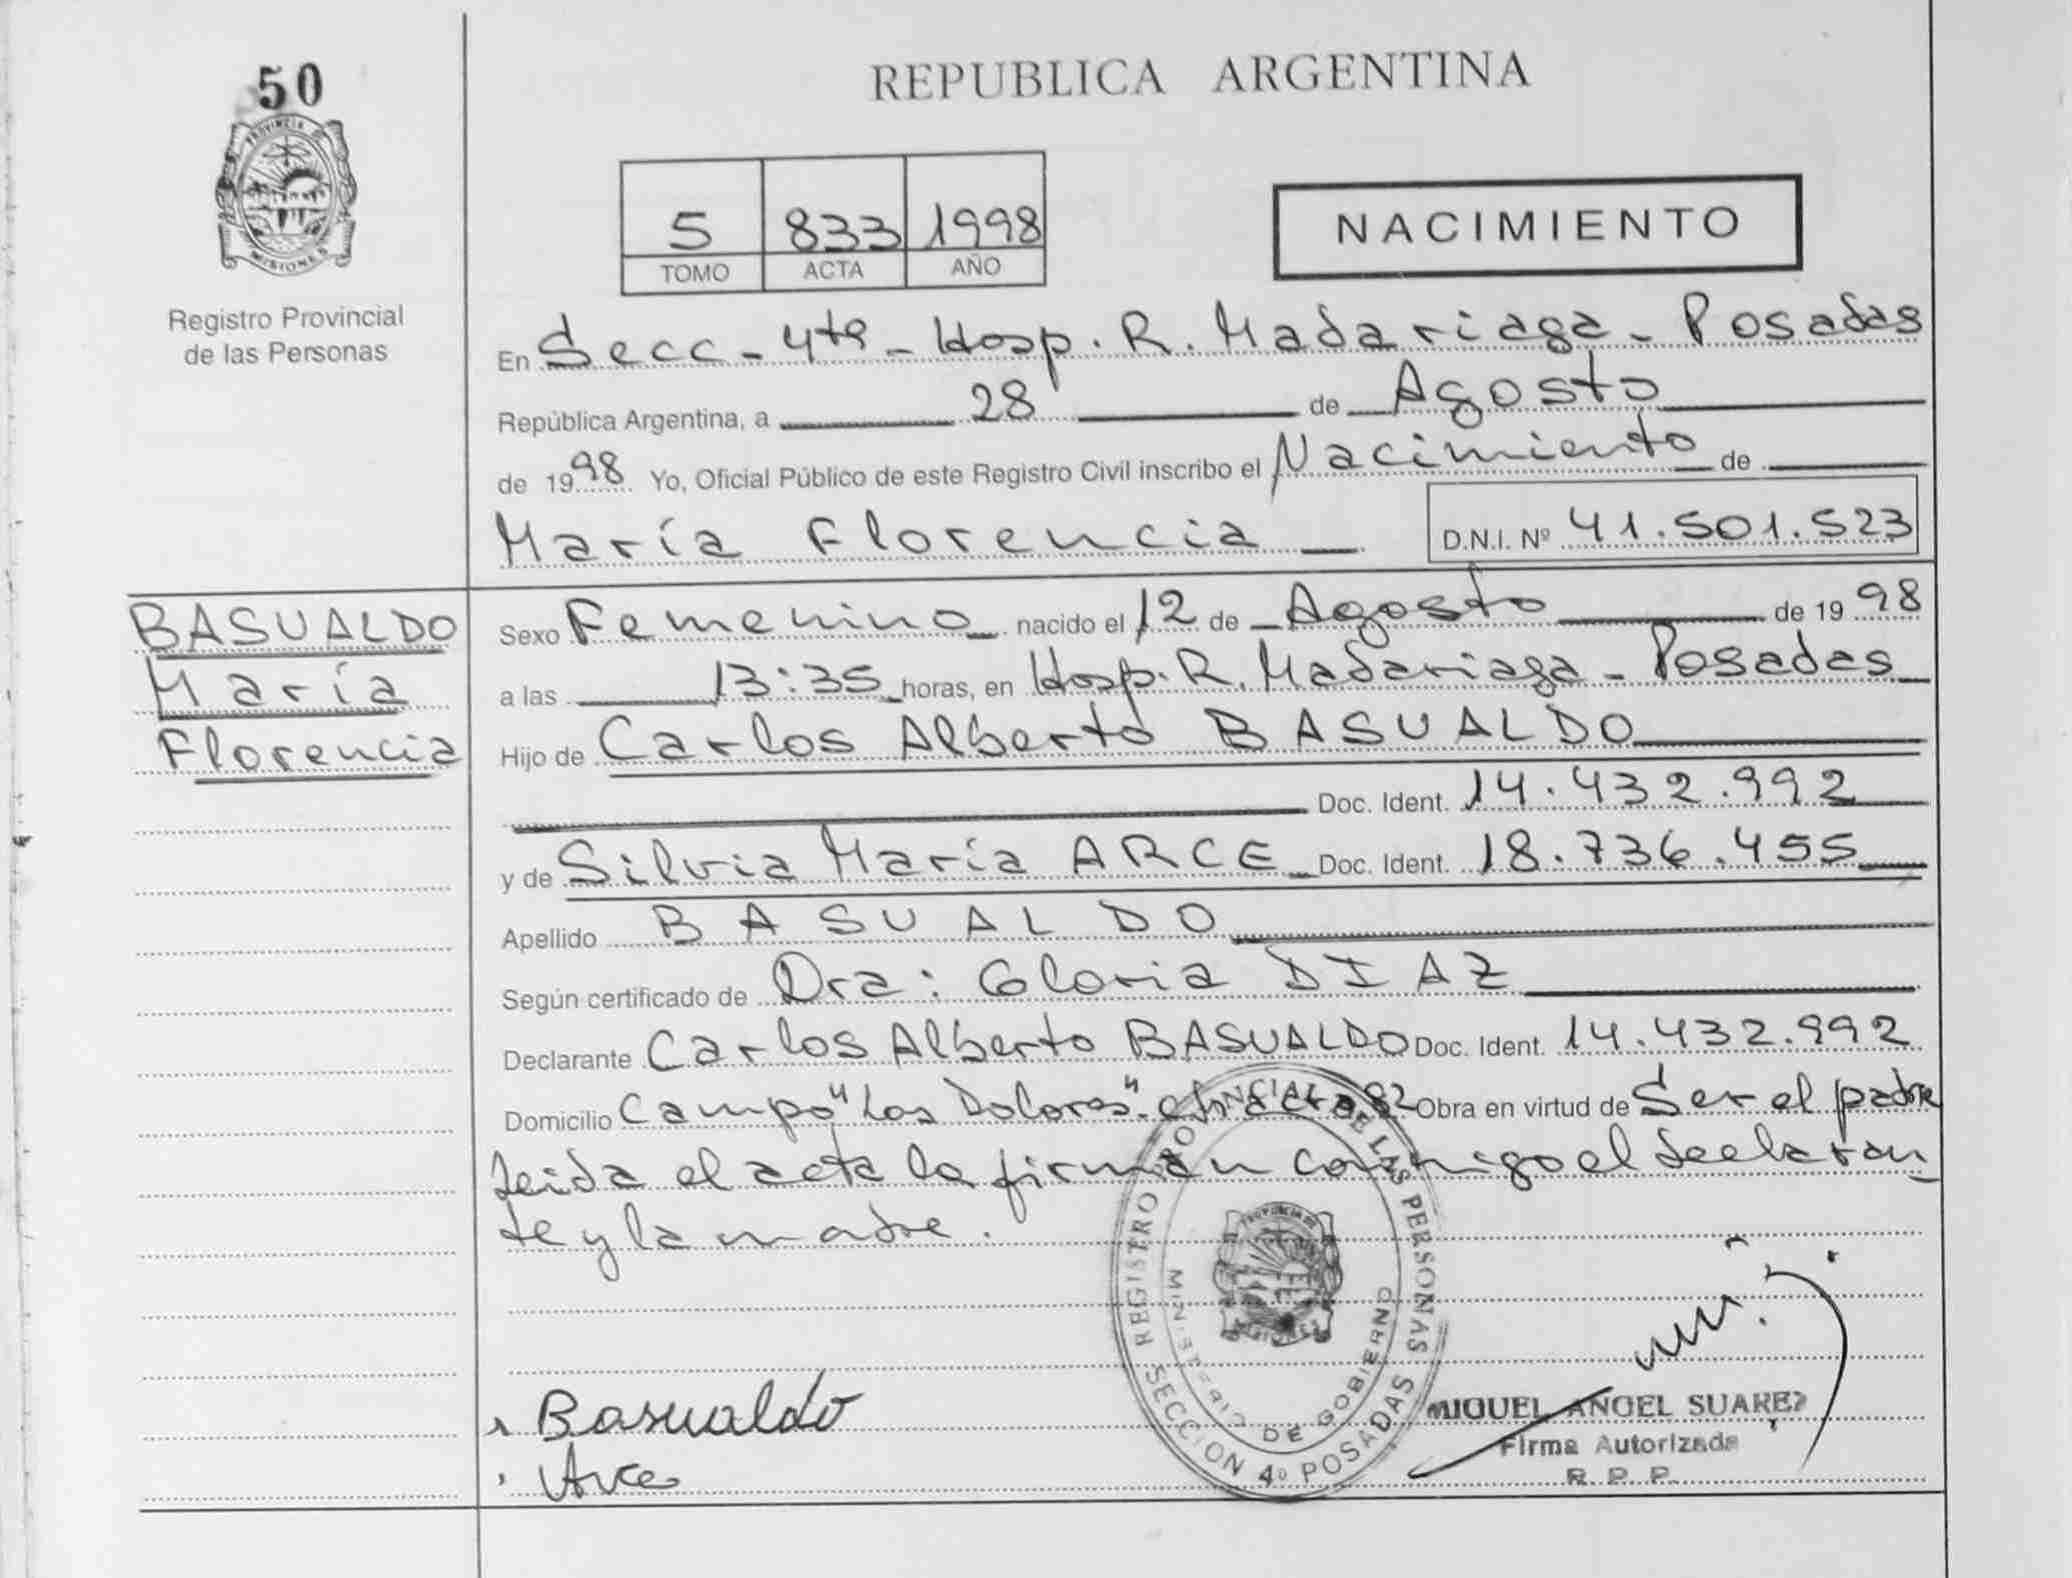 50
PROVINCIA DE
MISIONES
Registro Provincial
de las Personas
REPUBLICA ARGENTINA
5 833 1998
TOMO ACTA AÑO
NACIMIENTO
En Secc - 4ta - Hosp. R. Madariaga - Posadas
República Argentina, a 28 de Agosto
de 1998 Yo, Oficial Público de este Registro Civil inscribo el Nacimiento de
María Florencia D.N.I. Nº 41.501.523
BASUALDO
María
Florencia
Sexo Femenino nacido el 12 de Agosto de 1998
a las 13:35 horas, en Hosp. R. Madariaga - Posadas
Hijo de Carlos Alberto BASUALDO
Doc. Ident. 14.432.992
y de Silvia María ARCE Doc. Ident. 18.736.455
Apellido BASUALDO
Según certificado de Dra: Gloria DIAZ
Declarante Carlos Alberto BASUALDO Doc. Ident. 14.432.992
Domicilio Campo "Los Dolores" chacra 82 Obra en virtud de Ser el padre
Leida el acta la firman conmigo el declaran
te y la madre.
REGISTRO PROVINCIAL DE LAS PERSONAS
MINISTERIO DE GOBIERNO
SECCION 4º POSADAS
Basualdo
Arce
MIGUEL ANGEL SUAREZ
Firma Autorizada
R. P. P.